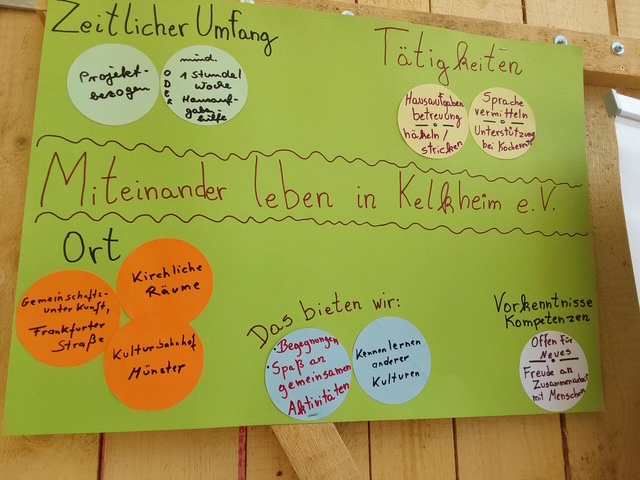 Zeitlicher Umfang
Projekt-
bezogen
ODER
mind.
1 Stunde/
Woche
Hausauf-
gabe
hilfe
Tätigkeiten
Hausaufgaben
betreuung
häkeln/
stricken
Sprache
vermitteln
Unterstützung
bei Kochevents
Miteinander leben in Kelkheim e.V.
Ort
Gemeinschafts-
unterkunft,
Frankfurter
Straße
Kirchliche
Räume
Kulturbahnhof
Münster
Das bieten wir:
• Begegnungen
• Spaß an
gemeinsamen
Aktivitäten
Kennenlernen
anderer
Kulturen
Vorkenntnisse
Kompetenzen
Offen für
Neues
Freude an
Zusammenarbeit
mit Menschen